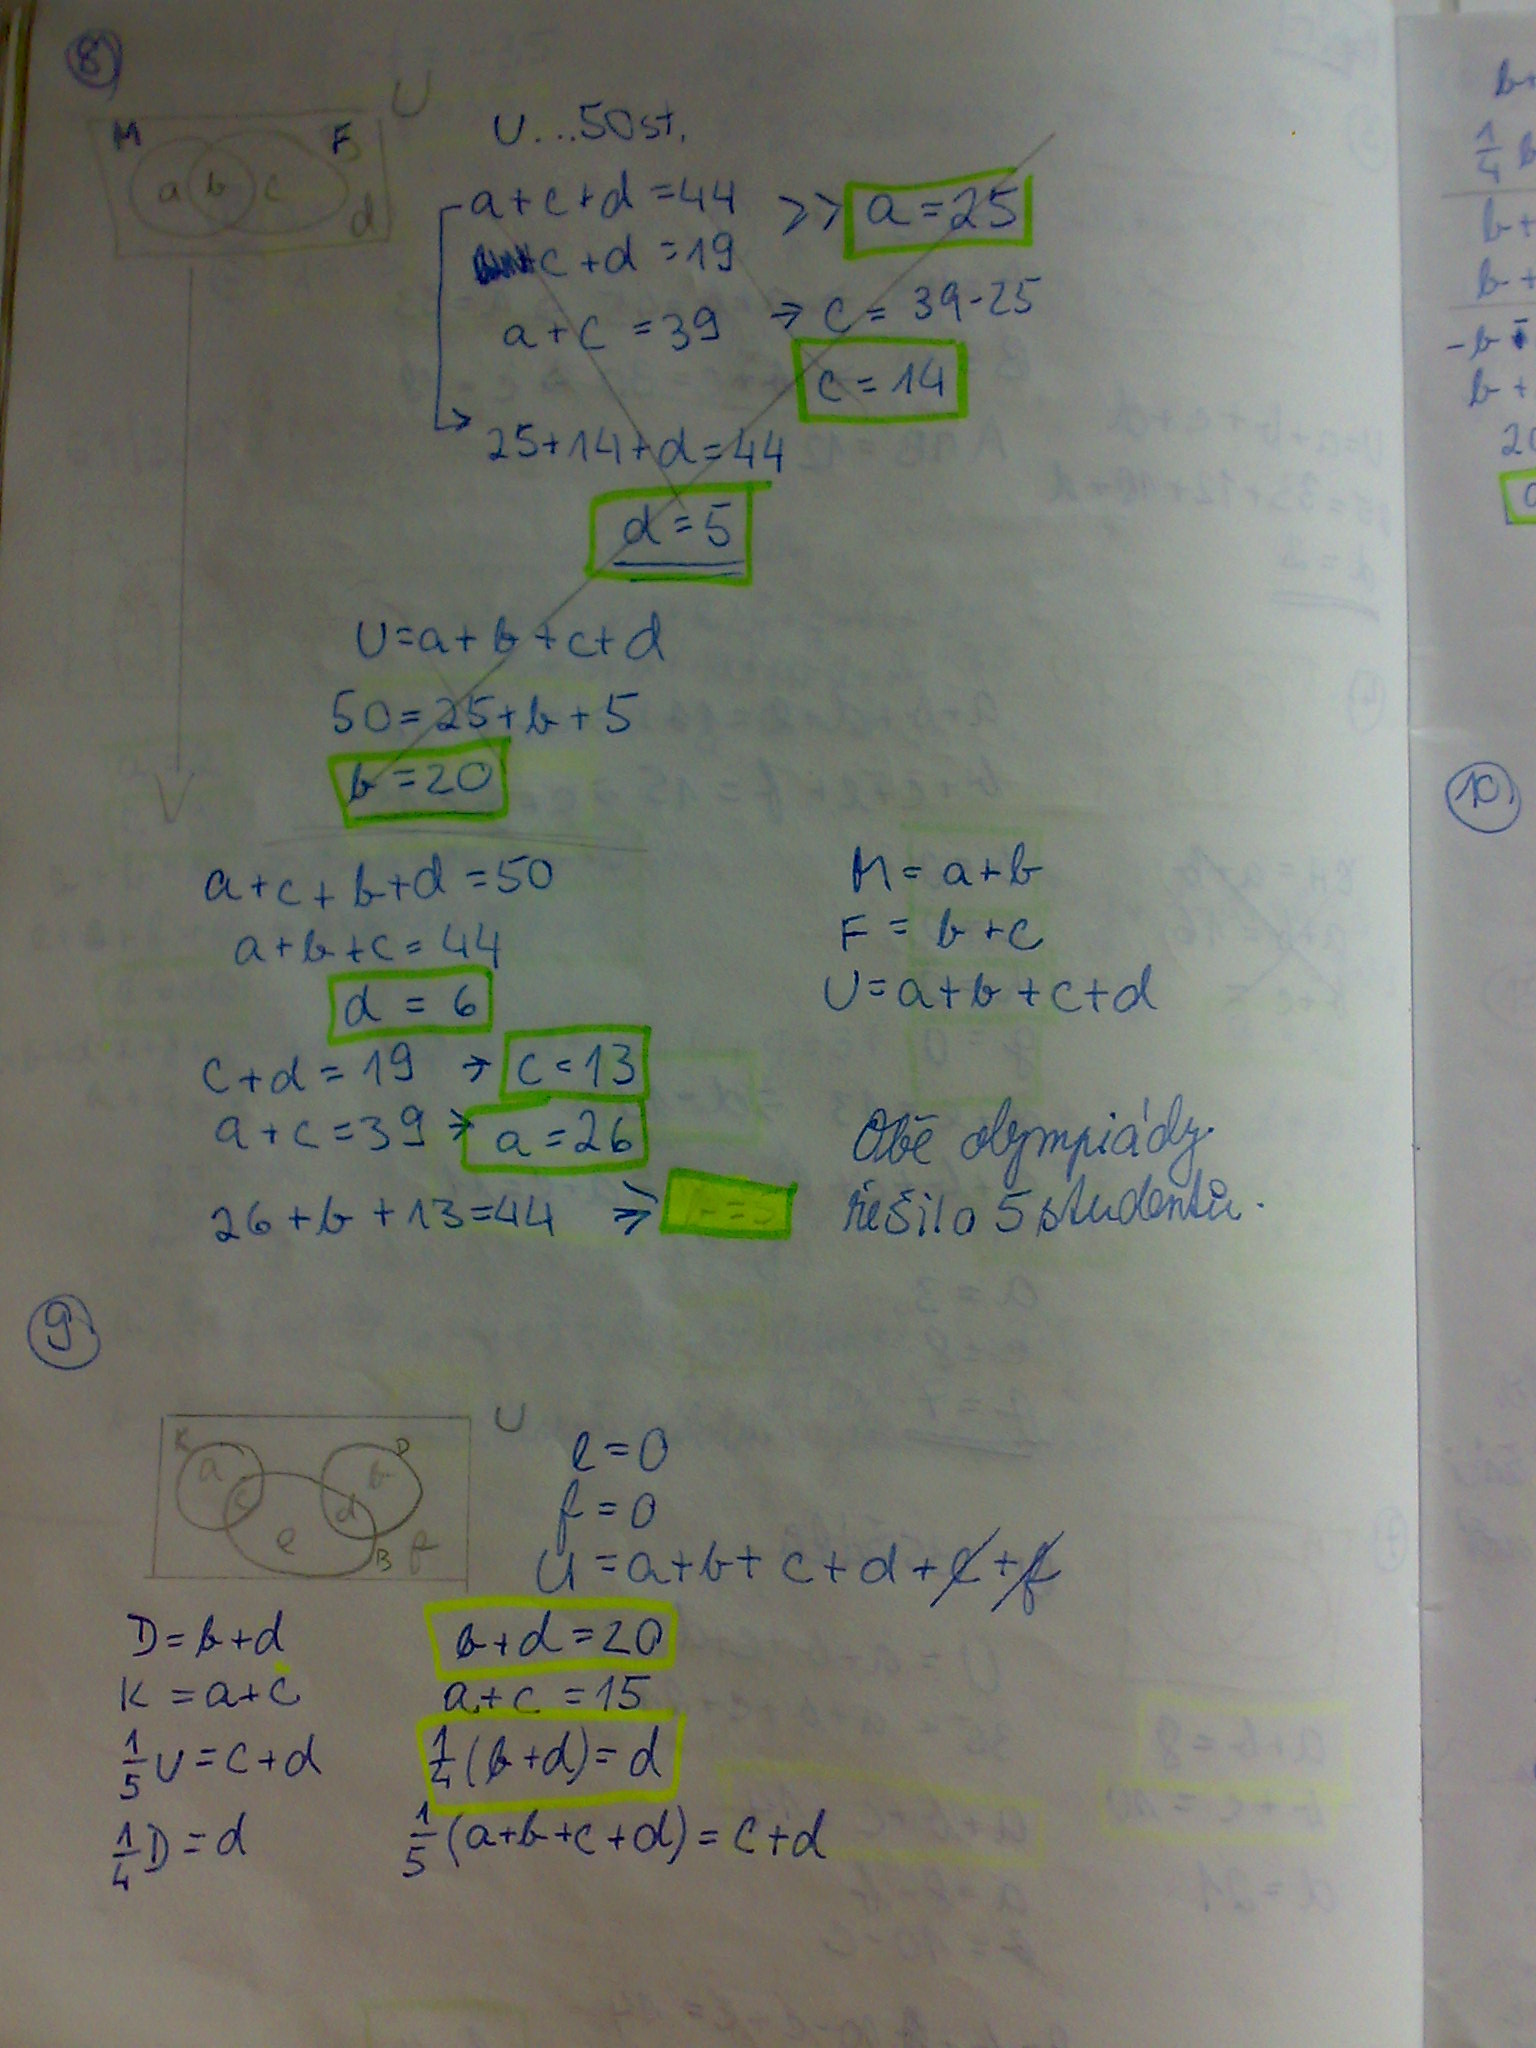 8)
U
M
F
a b c
d
U...50st.
a+c+d=44 >> a=25
c+d=19
a+c=39 → c=39-25
c=14
25+14+d=44
d=5
U=a+b+c+d
50=25+b+5
b=20
a+c+b+d=50
a+b+c=44
d=6
c+d=19 → c=13
a+c=39 → a=26
26+b+13=44 ⇒
M=a+b
F=b+c
U=a+b+c+d
Obě olympiády
řešilo 5 studentů.
9)
U
K
D
a
b
c
d
e
B
f
e=0
f=0
U=a+b+c+d+e+f
D=b+d
K=a+c
1/5 U=c+d
1/4 D=d
b+d=20
a+c=15
1/4(b+d)=d
1/5(a+b+c+d)=c+d
b+
1/4 B
b+
b+
-b
b+
20
10.